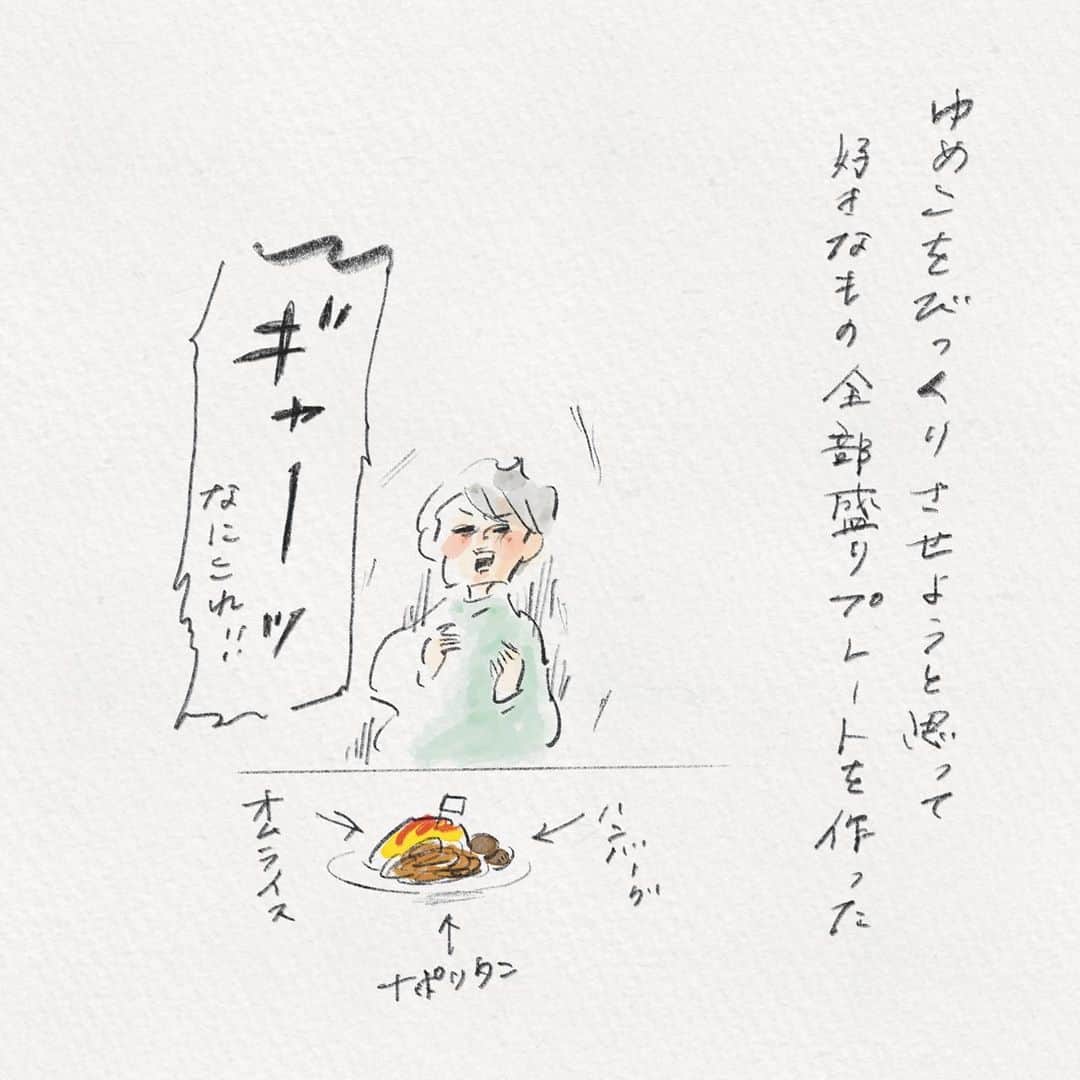 ゆめこをびっくりさせようと思って
好きなもの全部盛りプレートを作った
ギャーッ
なにこれ!!
オムライス
ハンバーグ
ナポリタン